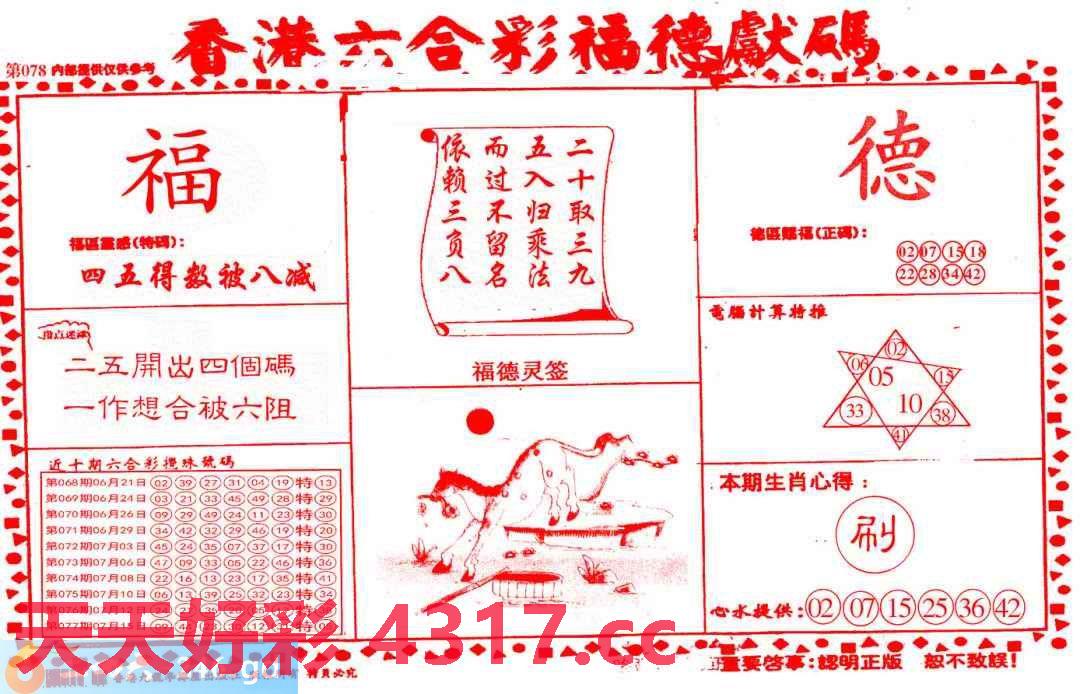 香港六合彩福德獻碼
第078 内部提供仅供参考
福
福區靈感(特碼):
四五得数被八减
二五開出四個碼
一作想合被六阻
近十期六合彩攪珠號碼
第068期06月21日 02 39 27 31 04 19 特 13
第069期06月24日 03 21 33 45 49 28 特 29
第070期06月26日 09 29 49 24 11 23 特 30
第071期06月29日 34 42 32 29 46 19 特 20
第072期07月03日 45 24 35 07 37 17 特 30
第073期07月06日 47 09 33 05 22 46 特 36
第074期07月08日 22 16 13 23 17 35 特 41
第075期07月10日 06 13 39 25 32 23 特 34
第076期07月12日
第077期07月15日
二十取三九
五入归乘法
而过不留名
依赖三负八
福德灵签
德
德區賜福(正碼):
02 07 15 18
22 28 34 42
電腦計算特推
02
06 05 15
33 10 38
41
本期生肖心得:
刷
心水提供: 02 07 15 25 36 42
天天好彩 4317.cc
重要啓事:認明正版 恕不致誤!